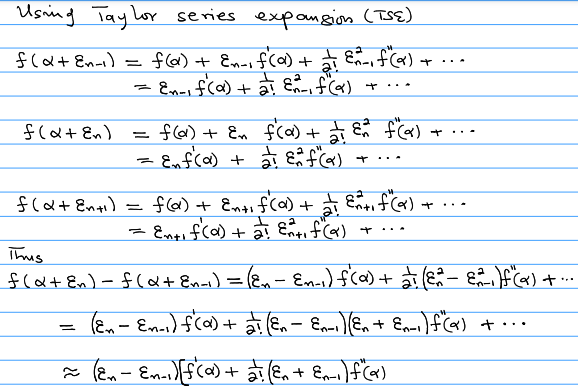 Using Taylor series expansion (TSE)
f(α+εₙ₋₁) = f(α) + εₙ₋₁f'(α) + 1/2! ε²ₙ₋₁f''(α) + ···
= εₙ₋₁f'(α) + 1/2! ε²ₙ₋₁f''(α) + ···
f(α+εₙ) = f(α) + εₙ f'(α) + 1/2! ε²ₙ f''(α) + ···
= εₙf'(α) + 1/2! ε²ₙf''(α) + ···
f(α+εₙ₊₁) = f(α) + εₙ₊₁f'(α) + 1/2! ε²ₙ₊₁f''(α) + ···
= εₙ₊₁f'(α) + 1/2! ε²ₙ₊₁f''(α) + ···
Thus
f(α+εₙ) - f(α+εₙ₋₁) = (εₙ - εₙ₋₁)f'(α) + 1/2!(ε²ₙ - ε²ₙ₋₁)f''(α) + ···
= (εₙ - εₙ₋₁)f'(α) + 1/2!(εₙ - εₙ₋₁)(εₙ + εₙ₋₁)f''(α) + ···
≈ (εₙ - εₙ₋₁)[f'(α) + 1/2!(εₙ + εₙ₋₁)f''(α)